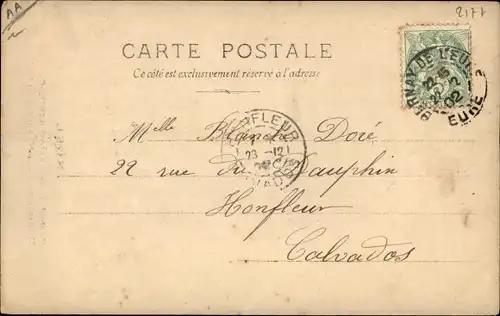 AA
2177
CARTE POSTALE
Ce côté est exclusivement réservé à l'adresse
BERNAY DE L'EURE
22 12
02
EURE
HONFLEUR
23 -12
CALVADOS
Melle Blanche Doré
22 rue du Dauphin
Honfleur
Calvados